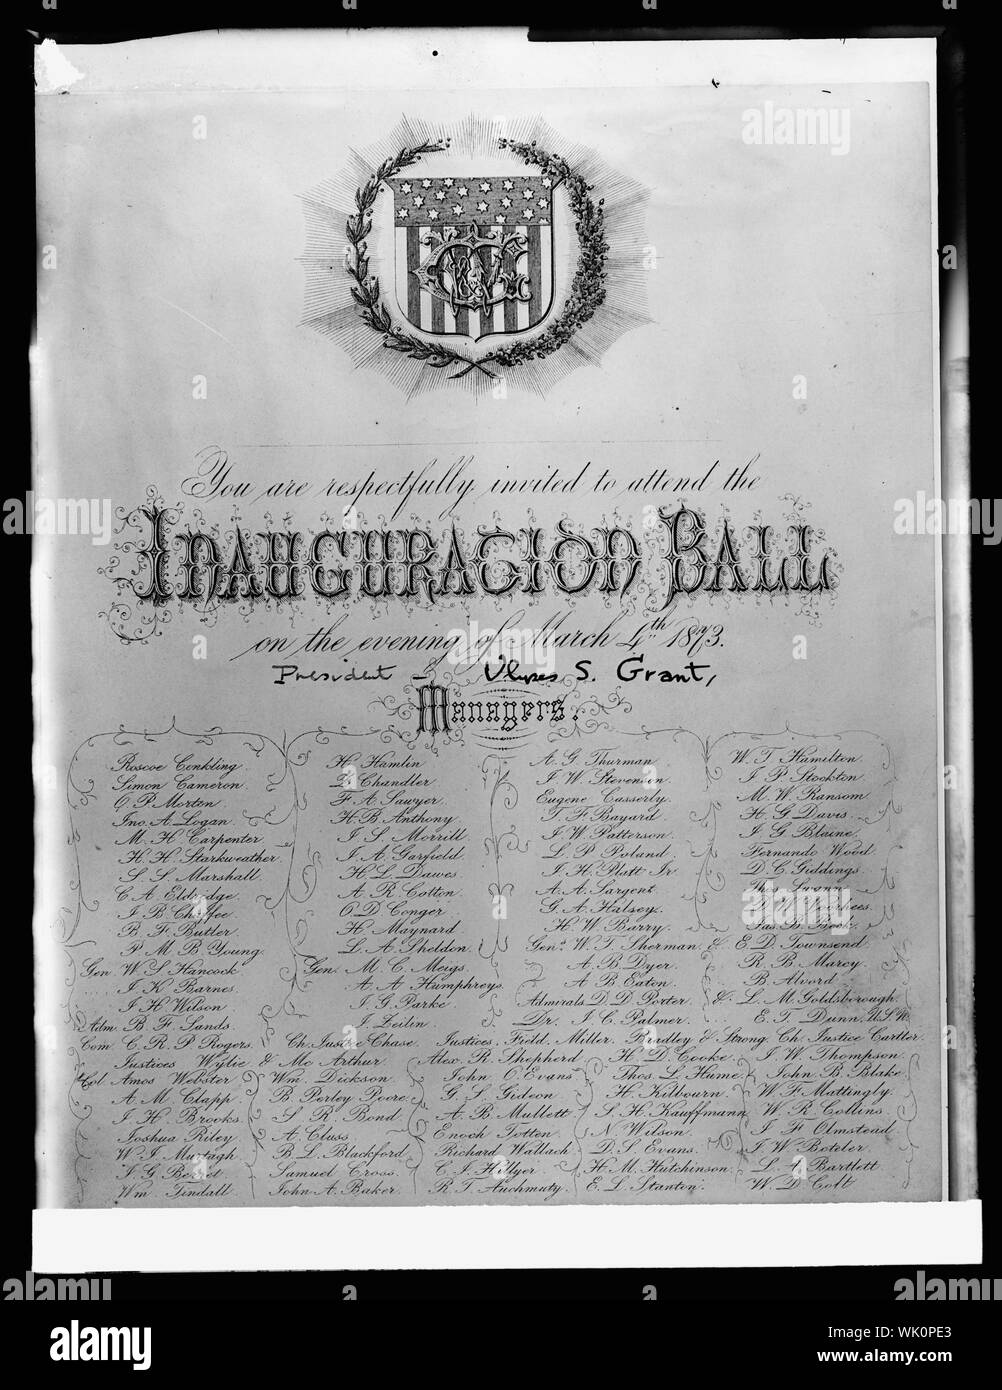 You are respectfully invited to attend the
INAUGURATION BALL
on the evening of March 4th 1873.
President - Ulysses S. Grant,
Managers.
Roscoe Conkling. H. Hamlin A. G. Thurman W. T. Hamilton.
Simon Cameron. Z. Chandler I. W. Stevenson. J. P. Stockton
O. P. Morton F. A. Sawyer. Eugene Casserly. M. W. Ransom
Jno. A. Logan. H. B. Anthony T. F. Bayard H. G. Davis.
M. H. Carpenter J. S. Morrill J. W. Patterson. J. G. Blaine.
H. H. Starkweather. J. A. Garfield. L. P. Poland. Fernando Wood.
S. S. Marshall. H. L. Dawes. J. H. Platt Jr. D. C. Giddings.
C. A. Eldridge. A. R. Cotton A. A. Sargent Thos. Swann
J. B. Chaffee O. D. Conger G. A. Halsey. D. W. Voorhees.
B. F. Butler. H. Maynard H. W. Barry. Jas. B. Beck.
P. M. B. Young. L. A. Sheldon. Genls. W. T. Sherman. & E. D. Townsend.
Gen. W. S. Hancock. Gen. M. C. Meigs. A. B. Dyer. R. B. Marcy.
J. K. Barnes. A. A. Humphreys. A. B. Eaton. B. Alvord.
J. H. Wilson J. G. Parke Admirals D. D. Porter & L. M. Goldsborough.
Adm. B. F. Sands. J. Zeilin. Dr. J. C. Palmer. E. T. Dunn, U.S.N.
Com. C. R. P. Rogers. Ch. Justice Chase. Justices. Field. Miller. Bradley & Strong. Ch. Justice Cartter.
Justices Wylie & Mc Arthur. Alex. R. Shepherd H. D. Cooke. J. W. Thompson.
Col. Amos Webster Wm. Dickson. John O. Evans Thos. L. Hume. John B. Blake.
A. M. Clapp. B. Perley Poore. G. S. Gideon H. Kilbourn. W. F. Mattingly.
J. H. Brooks. S. R. Bond A. B. Mullett S. H. Kauffmann W. R. Collins.
Joshua Riley A. Cluss. Enoch Totten. N. Wilson. J. F. Olmstead
W. J. Murtagh B. L. Blackford. Richard Wallach D. S. Evans. J. W. Boteler.
Samuel Cross. C. I. Hillyer H. M. Hutchinson L. A. Bartlett
Wm. Tindall John A. Baker. R. T. Auchmuty. E. L. Stanton. W. D. Colt
alamy
Image ID: WK0PE3
www.alamy.com